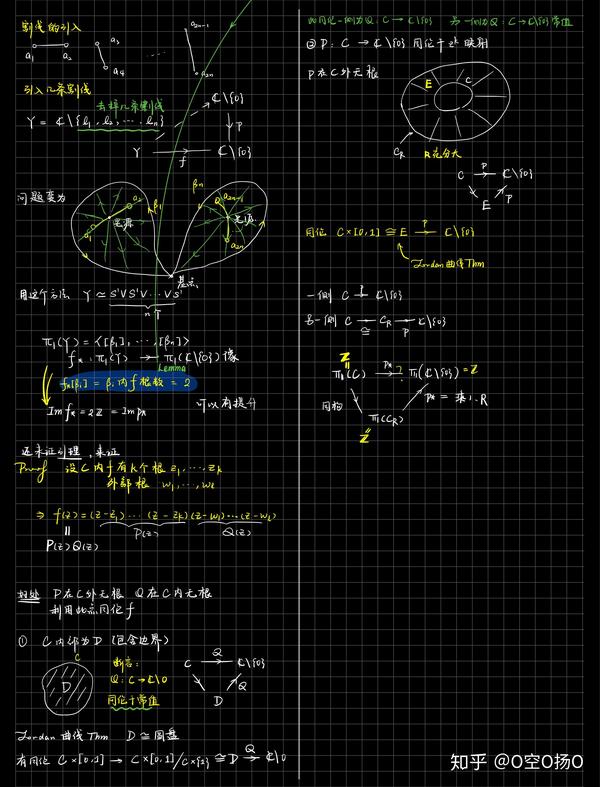 割线的引入
a₁ a₂ a₃ a₄ a₂ₙ₋₁ a₂ₙ
引入几条割线
去掉几条割线
Y = ℂ\{l₁, l₂, ..., lₙ}
ℂ\{0}
↓ p
Y →f ℂ\{0}
问题变为
β₁ βₙ
a₁ a₂ a₂ₙ₋₁ a₂ₙ
光源 光源
基点
用这个方法 Y ≃ S¹∨S¹∨...∨S¹
n个
π₁(Y) = <[β₁], ..., [βₙ]>
f* : π₁(Y) → π₁(ℂ\{0}) 像
Lemma
f*[βᵢ] = βᵢ内f根数 = 2
Im f* = 2ℤ = Im p*
可以有提升
还未证引理,来证
Proof 设C内f有k个根 z₁, ..., zₖ
外部根 w₁, ..., wₗ
⇒ f(z) = (z-z₁)...(z-zₖ)(z-w₁)...(z-wₗ)
P(z) Q(z)
‖
P(z)Q(z)
好处 P在C外无根 Q在C内无根
利用此点同伦f
① C内部为D (包含边界)
C
D
断言:
Q: C→ℂ\0
同伦于常值
C →Q ℂ\{0}
D Q
Jordan 曲线Thm D≅圆盘
有同伦 C×[0,1] → C×[0,1]/C×{1} ≅ D →Q ℂ\0
一侧为Q: C→ℂ\{0} 另一侧为Q: C→ℂ\{0}常值
② P: C → ℂ\{0} 同伦于zᵏ映射
P在C外无根
E C
C_R R充分大
C →P ℂ\{0}
E P
同伦 C×[0,1] ≅ E →P ℂ\{0}
Jordan曲线Thm
一侧 C →P ℂ\{0}
另一侧 C →≅ C_R →P ℂ\{0}
ℤ
‖
π₁(C) →P* ? π₁(ℂ\{0}) = ℤ
同构 P* = 乘以k
π₁(C_R)
‖
ℤ
知乎 @O空O扬O